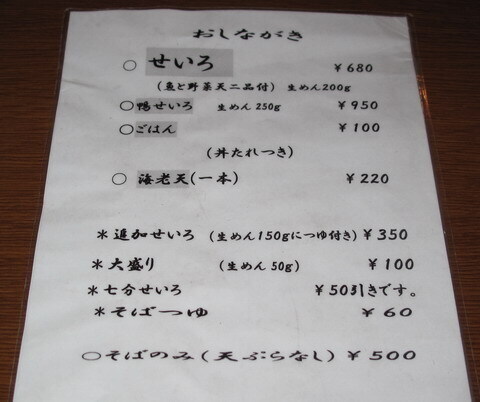 おしながき
○ せいろ ￥680
(魚と野菜天二品付) 生めん200g
○鴨せいろ 生めん 250g ￥950
○ごはん ￥100
(丼たれつき)
○ 海老天(一本) ￥220
＊追加せいろ (生めん150gにつゆ付き) ￥350
＊大盛り (生めん 50g) ￥100
＊七分せいろ ￥50引きです。
＊そばつゆ ￥60
○そばのみ(天ぷらなし) ￥500